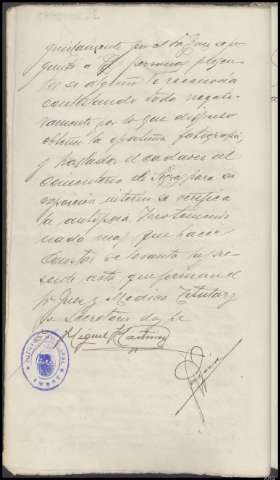 guidamente por el Sr. Juez se pre
guntó a
si alguno le reconocía
contestando todos negati-
vamente por lo que dispuso
obtener la oportuna fotografía
y trasladar el cadáver al
cementerio de para su
exposición interin se verifica
la autopsia. Y no teniendo
nada mas que hacer
constar se levanta la pre-
sente acta que firman el
Sr Juez y Medico Titular y
yo Secretario doy fe
Miguel Martinez